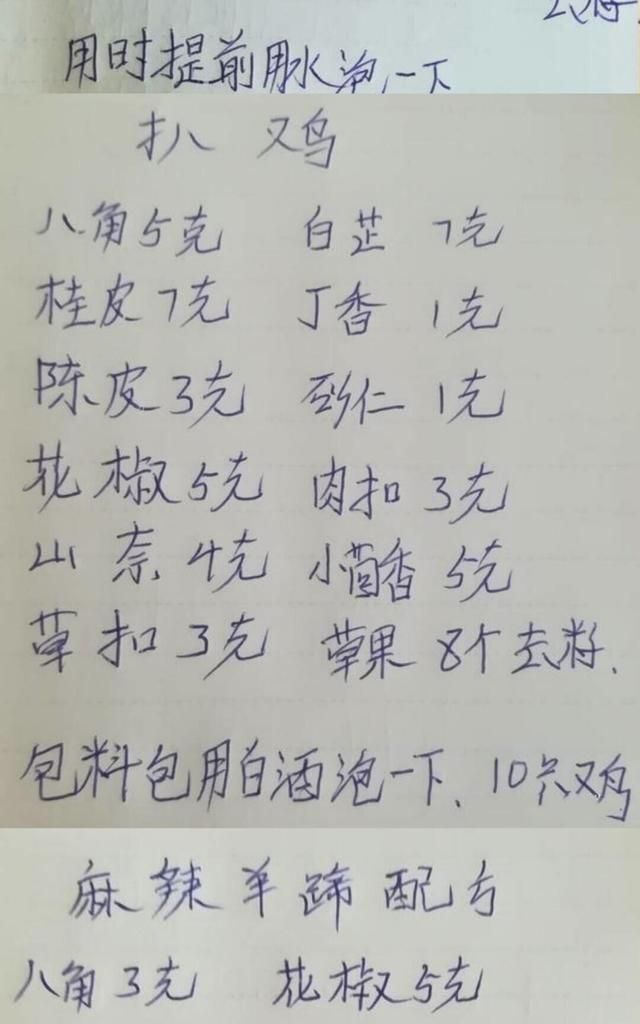 用时提前用水泡一下
扒 鸡
八角5克 白芷 7克
桂皮7克 丁香 1克
陈皮3克 砂仁 1克
花椒5克 肉扣 3克
山奈4克 小茴香 5克
草扣3克 草果 8个去籽.
包料包用白酒泡一下、10只鸡
麻辣羊蹄配方
八角3克 花椒5克